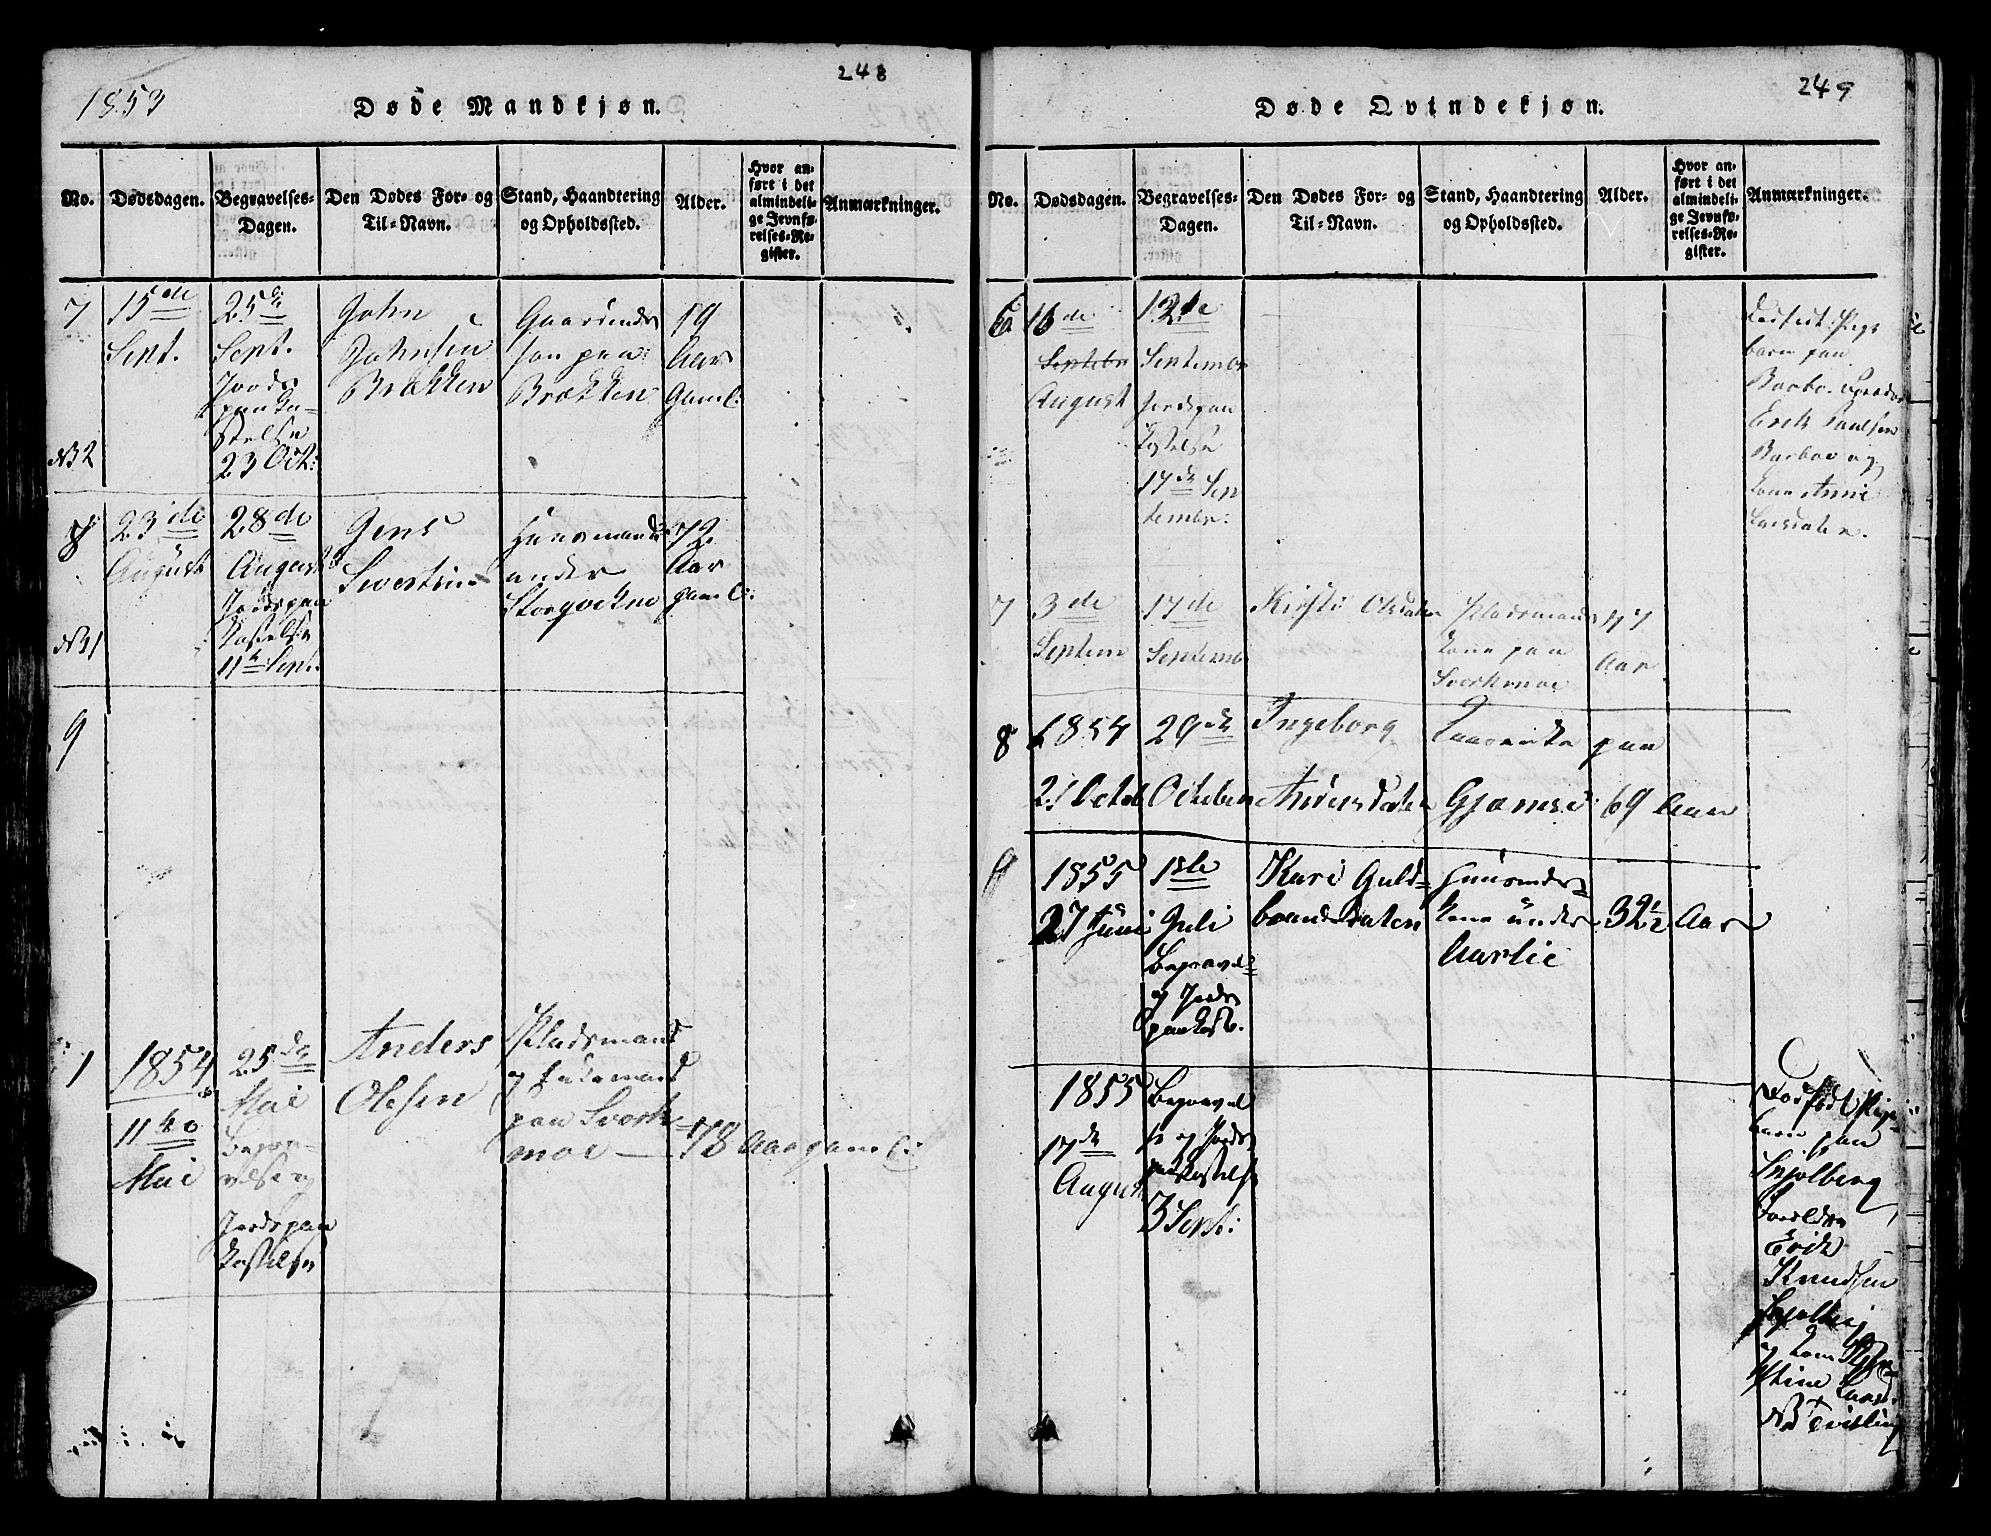 1853
248
Døde Mandkjøn.
No.
Dødsdagen.
Begravelses-
Dagen.
Den Dødes For- og
Til-Navn.
Stand, Haandtering
og Opholdssted.
Alder.
Hvor an-
ført i det
almindeli-
ge Jevnfø-
relses-Re-
gister.
Anmærkninger.
7
15de
Sept.
25de
Sept.
Jords
paaka-
stelse
23 Oct:
John
Johnsen
Brækken
Gaardmands
søn paa
Brækken
19
Aar
Gaml.
NB2
8
23de
August
28de
August
Jordspaa
kastelse
11te Sept.
Jens
Sivertsen
Huusmand
under
Storqvekne
72
Aar
gaml:
NB1
9
1
1854
11te
Mai
25de
Mai
Begra-
velse og
Jordspaa
kastelse
Anders
Olesen
Pladsmand
og
paa Svork-
moe
78 Aar gaml:
249
Døde Qvindekjøn.
No.
Dødsdagen.
Begravelses-
Dagen.
Den Dødes For- og
Til-Navn.
Stand, Haandtering
og Opholdssted.
Alder.
Hvor an-
ført i det
almindeli-
ge Jevnfø-
relses-Re-
gister.
Anmærkninger.
6
16de
Septebr
August
Septembr
Jordspaa
kastelse
17de Sep
tembr:
Dødfødt Pige
barn paa
Barbo
Erik Paulsen
Barboe og
kone Anne
Larsdatter.
7
3de
Septem
17de
Septemb
Kirsti Olsdatter
Pladsmands
kone paa
Svorkmoe
77
Aar
8
1854
21 Octob
29de
October
Ingeborg
Andersdatter
paa
Gjømse
69 Aar
9
1855
27 Juni
1ste
Juli
Begravel
og Jords
paakast.
Kari Guld-
brandsdatter
Huusmands
kone under
Aarlie
32½ Aar
1855
17de
August
Begravel
se og Jords
paakastelse
3 Sept:
Dødfødt Pige
barn paa
Snjølberg
Forældre
Erik
Knudsen
og kone
Stine
NB Tvilling